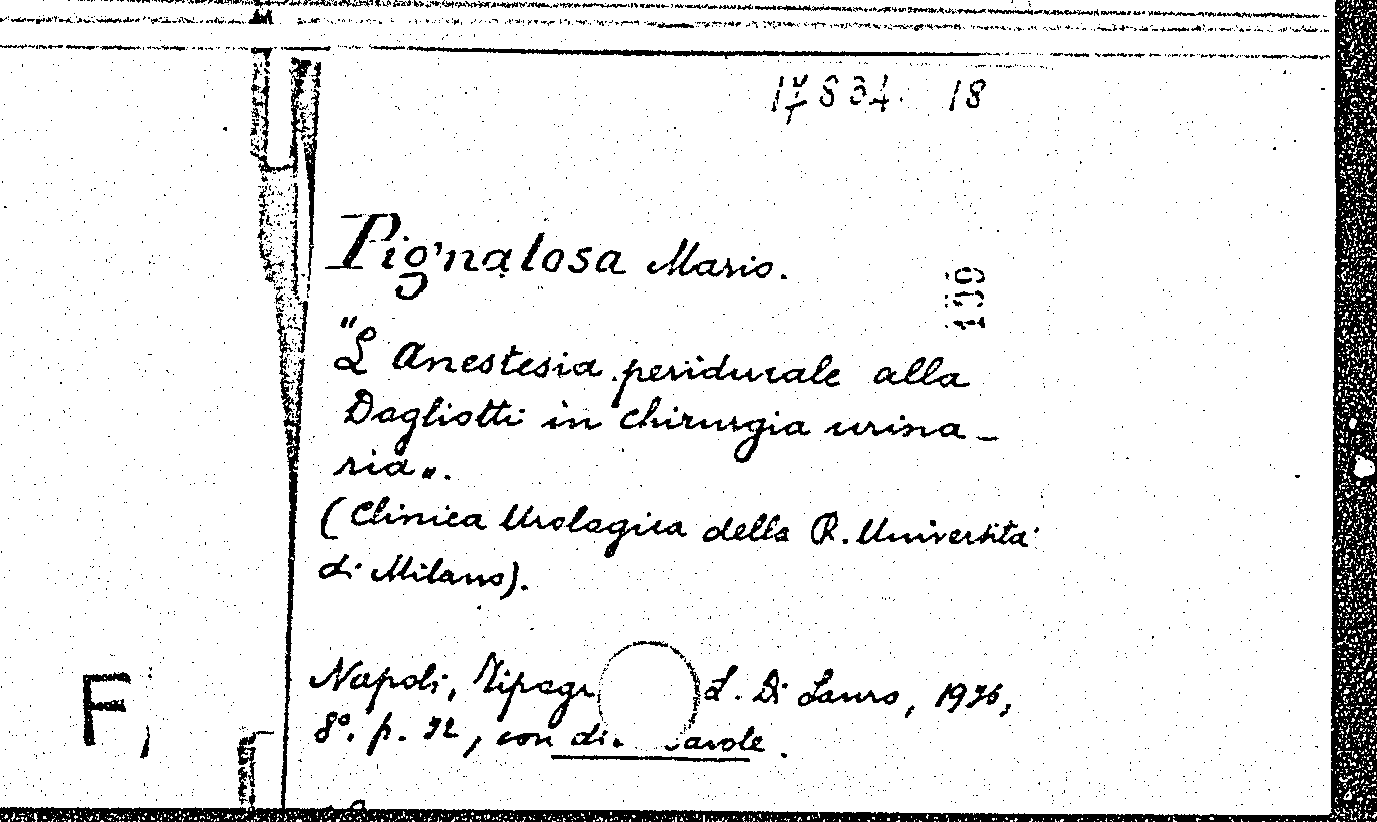 17834. 18
Pignalosa Mario.
130
"L'Anestesia peridurale alla
Dogliotti in chirurgia urina-
ria".
(Clinica Urologica della R. Università
di Milano).
Napoli, Tipogr L. Di Lauro, 1936,
8°. p. 32, con
F,